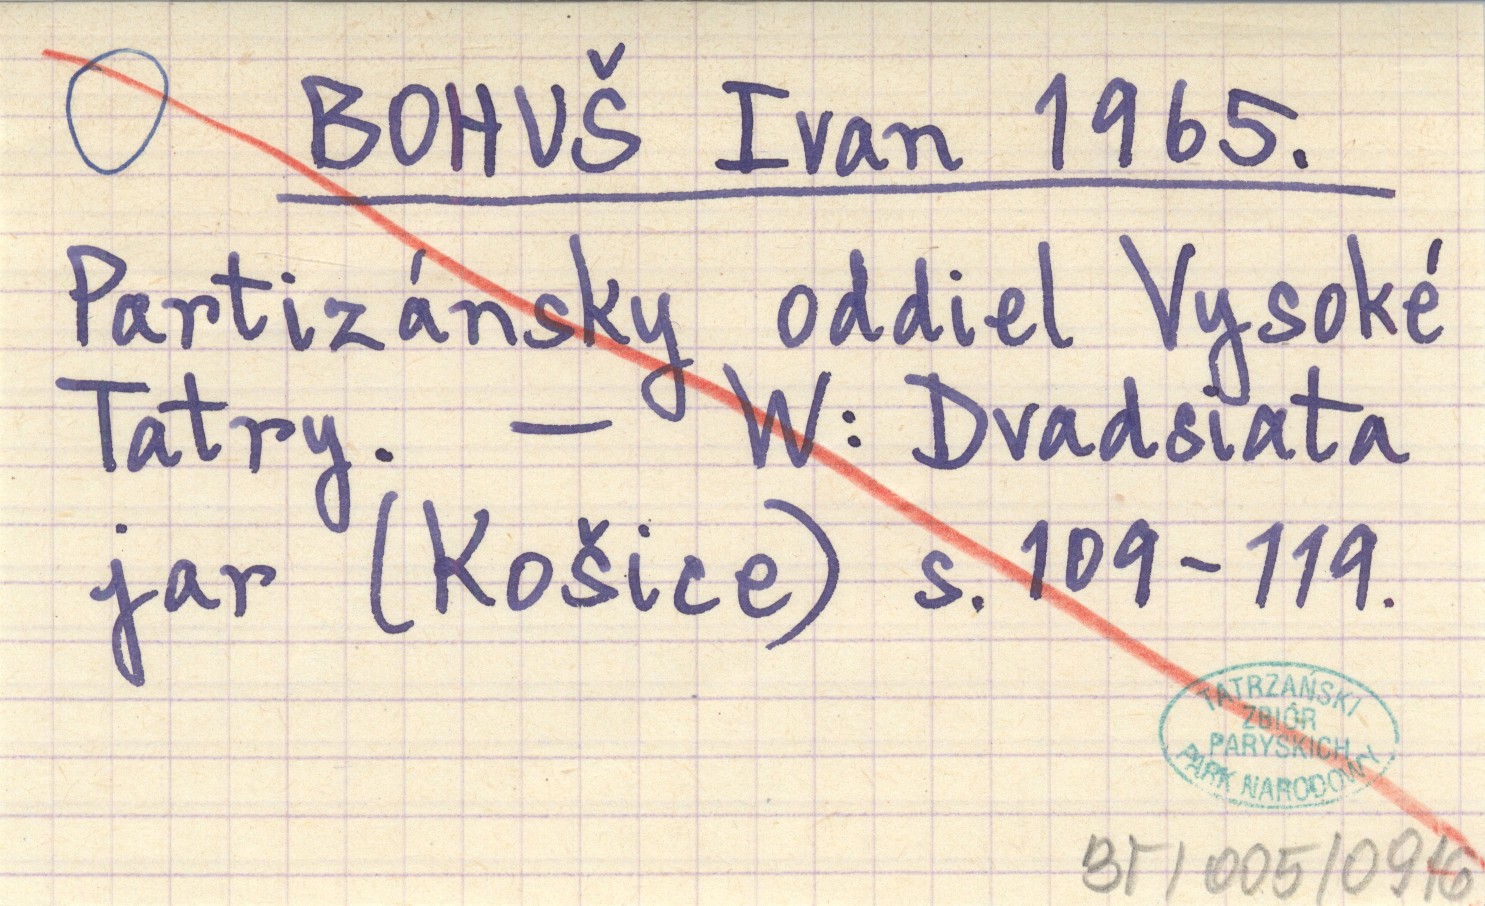 BOHUŠ Ivan 1965.
Partizánsky oddiel Vysoké
Tatry. — W: Dvadsiata
jar (Košice) s. 109-119.
TATRZAŃSKI
ZBIÓR
PARYSKICH
PARK NARODOWY
BT/005/0916